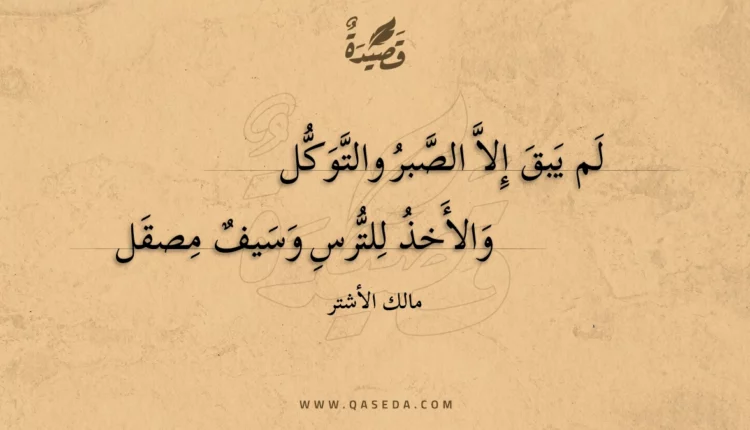 قَصِيدَةٌ
لَم يَبقَ إِلاَّ الصَّبرُ والتَّوَكُّل
وَالأَخذُ لِلتُّرسِ وَسَيفٌ مِصقَل
مالك الأشتر
WWW.QASEDA.COM